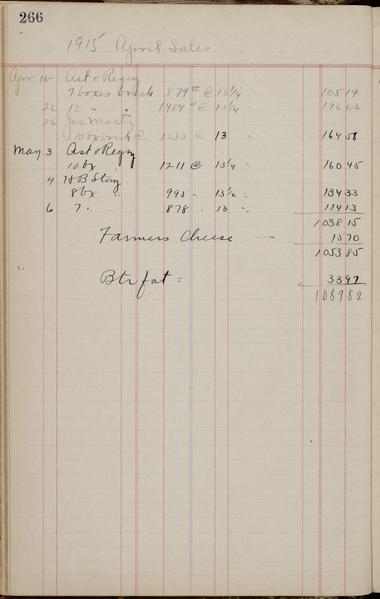 266
1915 April Sales
Apr
Ast & Regez
7 boxes brick 879 # @ 13 1/4 = 105 14
22 12 " " 1484 # @ 13 1/4 196 63
26 Jac Marty
10 bx brick @ 1253 @ 13 = 164 58
May 3 Ast & Regez
10 bx " 1211 @ 13 1/4 = 160 45
4
8 bx " 13 = 134 33
6 7 " 878 " 13 = 114 13
1038 15
Farmers Cheese — 15 70
1053 85
Btr fat = 33 97
1087 82